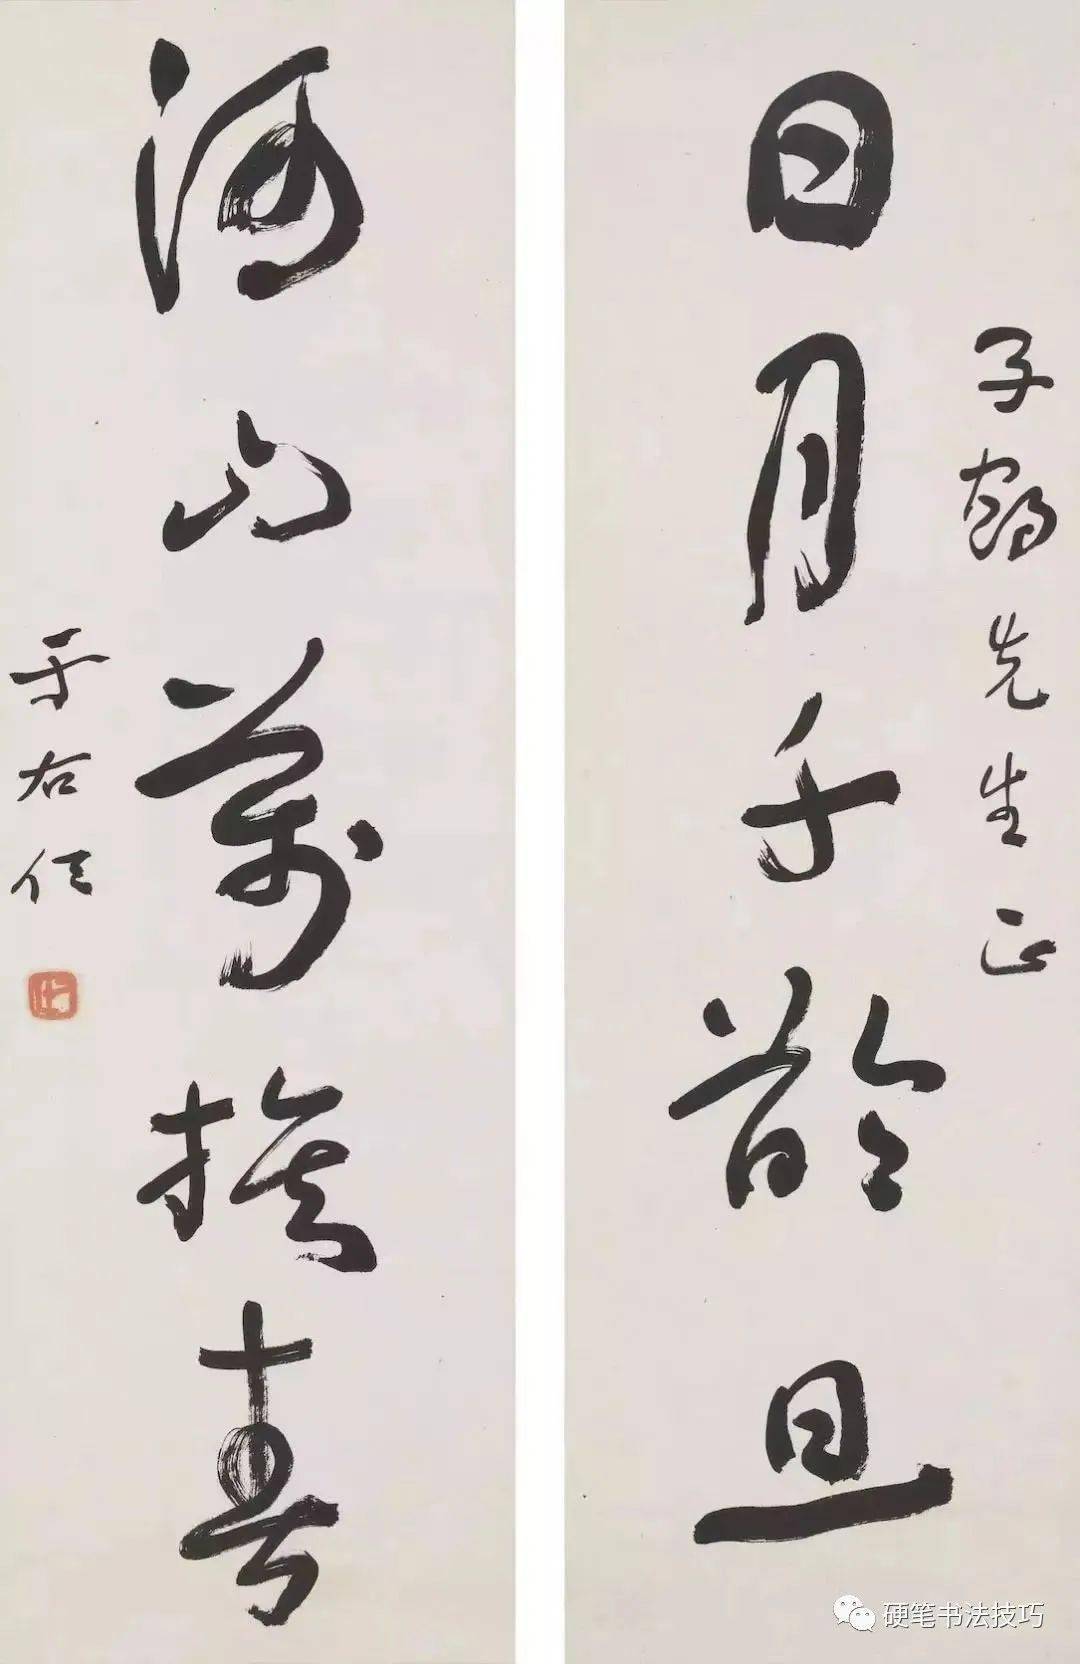 子鶴先生正
日月千齡旦
河山萬族春
于右任
硬笔书法技巧